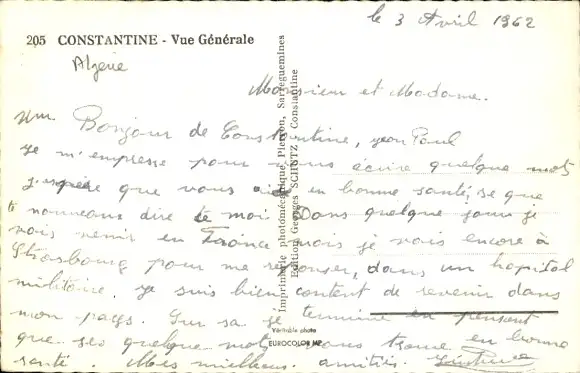 le 3 Avril 1962
205 CONSTANTINE - Vue Générale
Algérie
Monsieur et Madame.
Un Bonjour de Constantine, Jean Paul
Je m'empresse pour vous écrire quelque mots
j'espère que vous en bonne santé, se que
te nouveaus dire de moi. Dans quelque jours je
vais venir en France mais je vais encore à
Strasbourg pour me reposer, dans un hopital
militaire. Je suis bien content de revenir dans
mon pays. Sur sa je termine en pensant
que ses quelque mots vous trouve en bonne
santé. Mes meilleurs amitiés.
Imprimerie photomécanique Pierron, Sarreguemines
Edition Georges SCHUTZ, Constantine
Véritable photo
EUROCOLOR MP